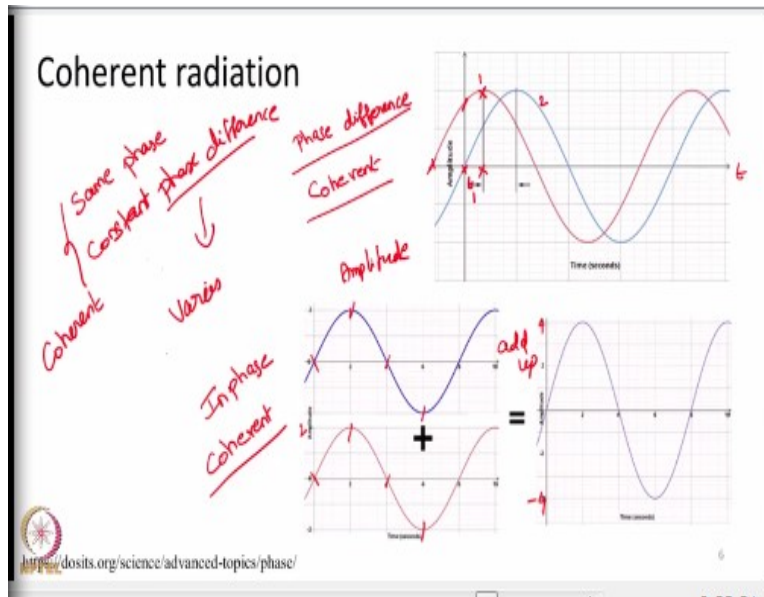 Coherent radiation
Same phase
Constant phase difference
Coherent
Varies
Phase difference
Coherent
Amplitude
Inphase
Coherent
1
2
t
Amplitude
t1
Time (seconds)
add
up
4
-4
+
=
2
Amplitude
Time (seconds)
Amplitude
Time (seconds)
https://dosits.org/science/advanced-topics/phase/
6